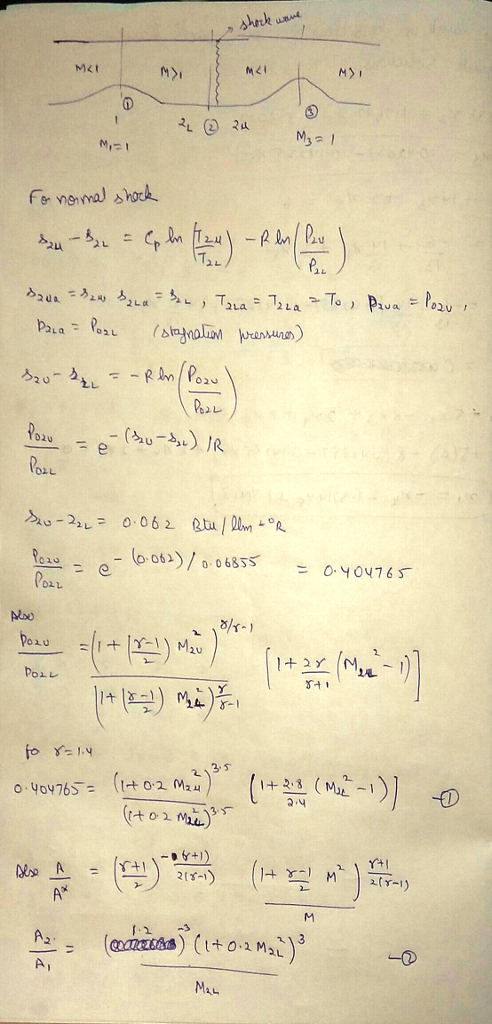 shock wave
M<1 M>1 M<1 M>1
① ③
1 2L ② 2u
M₁=1 M₃ = 1
For normal shock
s₂u − s₂L = Cp ln (T₂u / T₂L) − R ln (P₂u / P₂L)
s₂ua = s₂u s₂La = s₂L , T₂ua = T₂La = T₀ , P₂ua = P₀₂u ,
P₂La = P₀₂L (stagnation pressures)
s₂u − s₂L = − R ln (P₀₂u / P₀₂L)
P₀₂u / P₀₂L = e^−(s₂u − s₂L) /R
s₂u − s₂L = 0.062 Btu / lbm °R
P₀₂u / P₀₂L = e^−(0.062)/0.06855 = 0.404765
Also
P₀₂u / P₀₂L = (1 + (γ−1 / 2) M₂u²)^γ/γ−1 / (1 + (γ−1 / 2) M₂L²)^γ/γ−1 [1 + 2γ / γ+1 (M₂L² − 1)]
fo γ = 1.4
0.404765 = (1+0.2 M₂u²)^3.5 / (1+0.2 M₂L²)^3.5 (1 + 2.8 / 2.4 (M₂L² − 1)) —①
Also A / A* = (γ+1 / 2)^−(γ+1) / 2(γ−1) (1 + γ−1 / 2 M²)^γ+1 / 2(γ−1) / M
A₂ / A₁ = (1.2)^−3 (1+0.2 M₂L²)^3 / M₂L —②